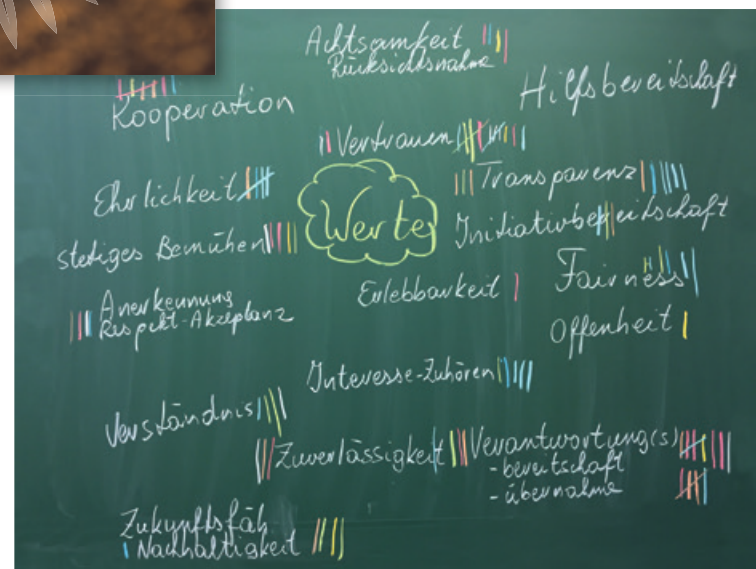 Achtsamkeit
Rücksichtsnahme
Hilfsbereitschaft
Kooperation
Vertrauen
Ehrlichkeit
Transparenz
Werte
Initiativbereitschaft
stetiges Bemühen
Erlebbarkeit
Fairness
Anerkennung
Respekt-Akzeptanz
Offenheit
Interesse-Zuhören
Verständnis
Zuverlässigkeit
Verantwortung(s)
-bereitschaft
-übernahme
Zukunftsfäh
Nachhaltigkeit